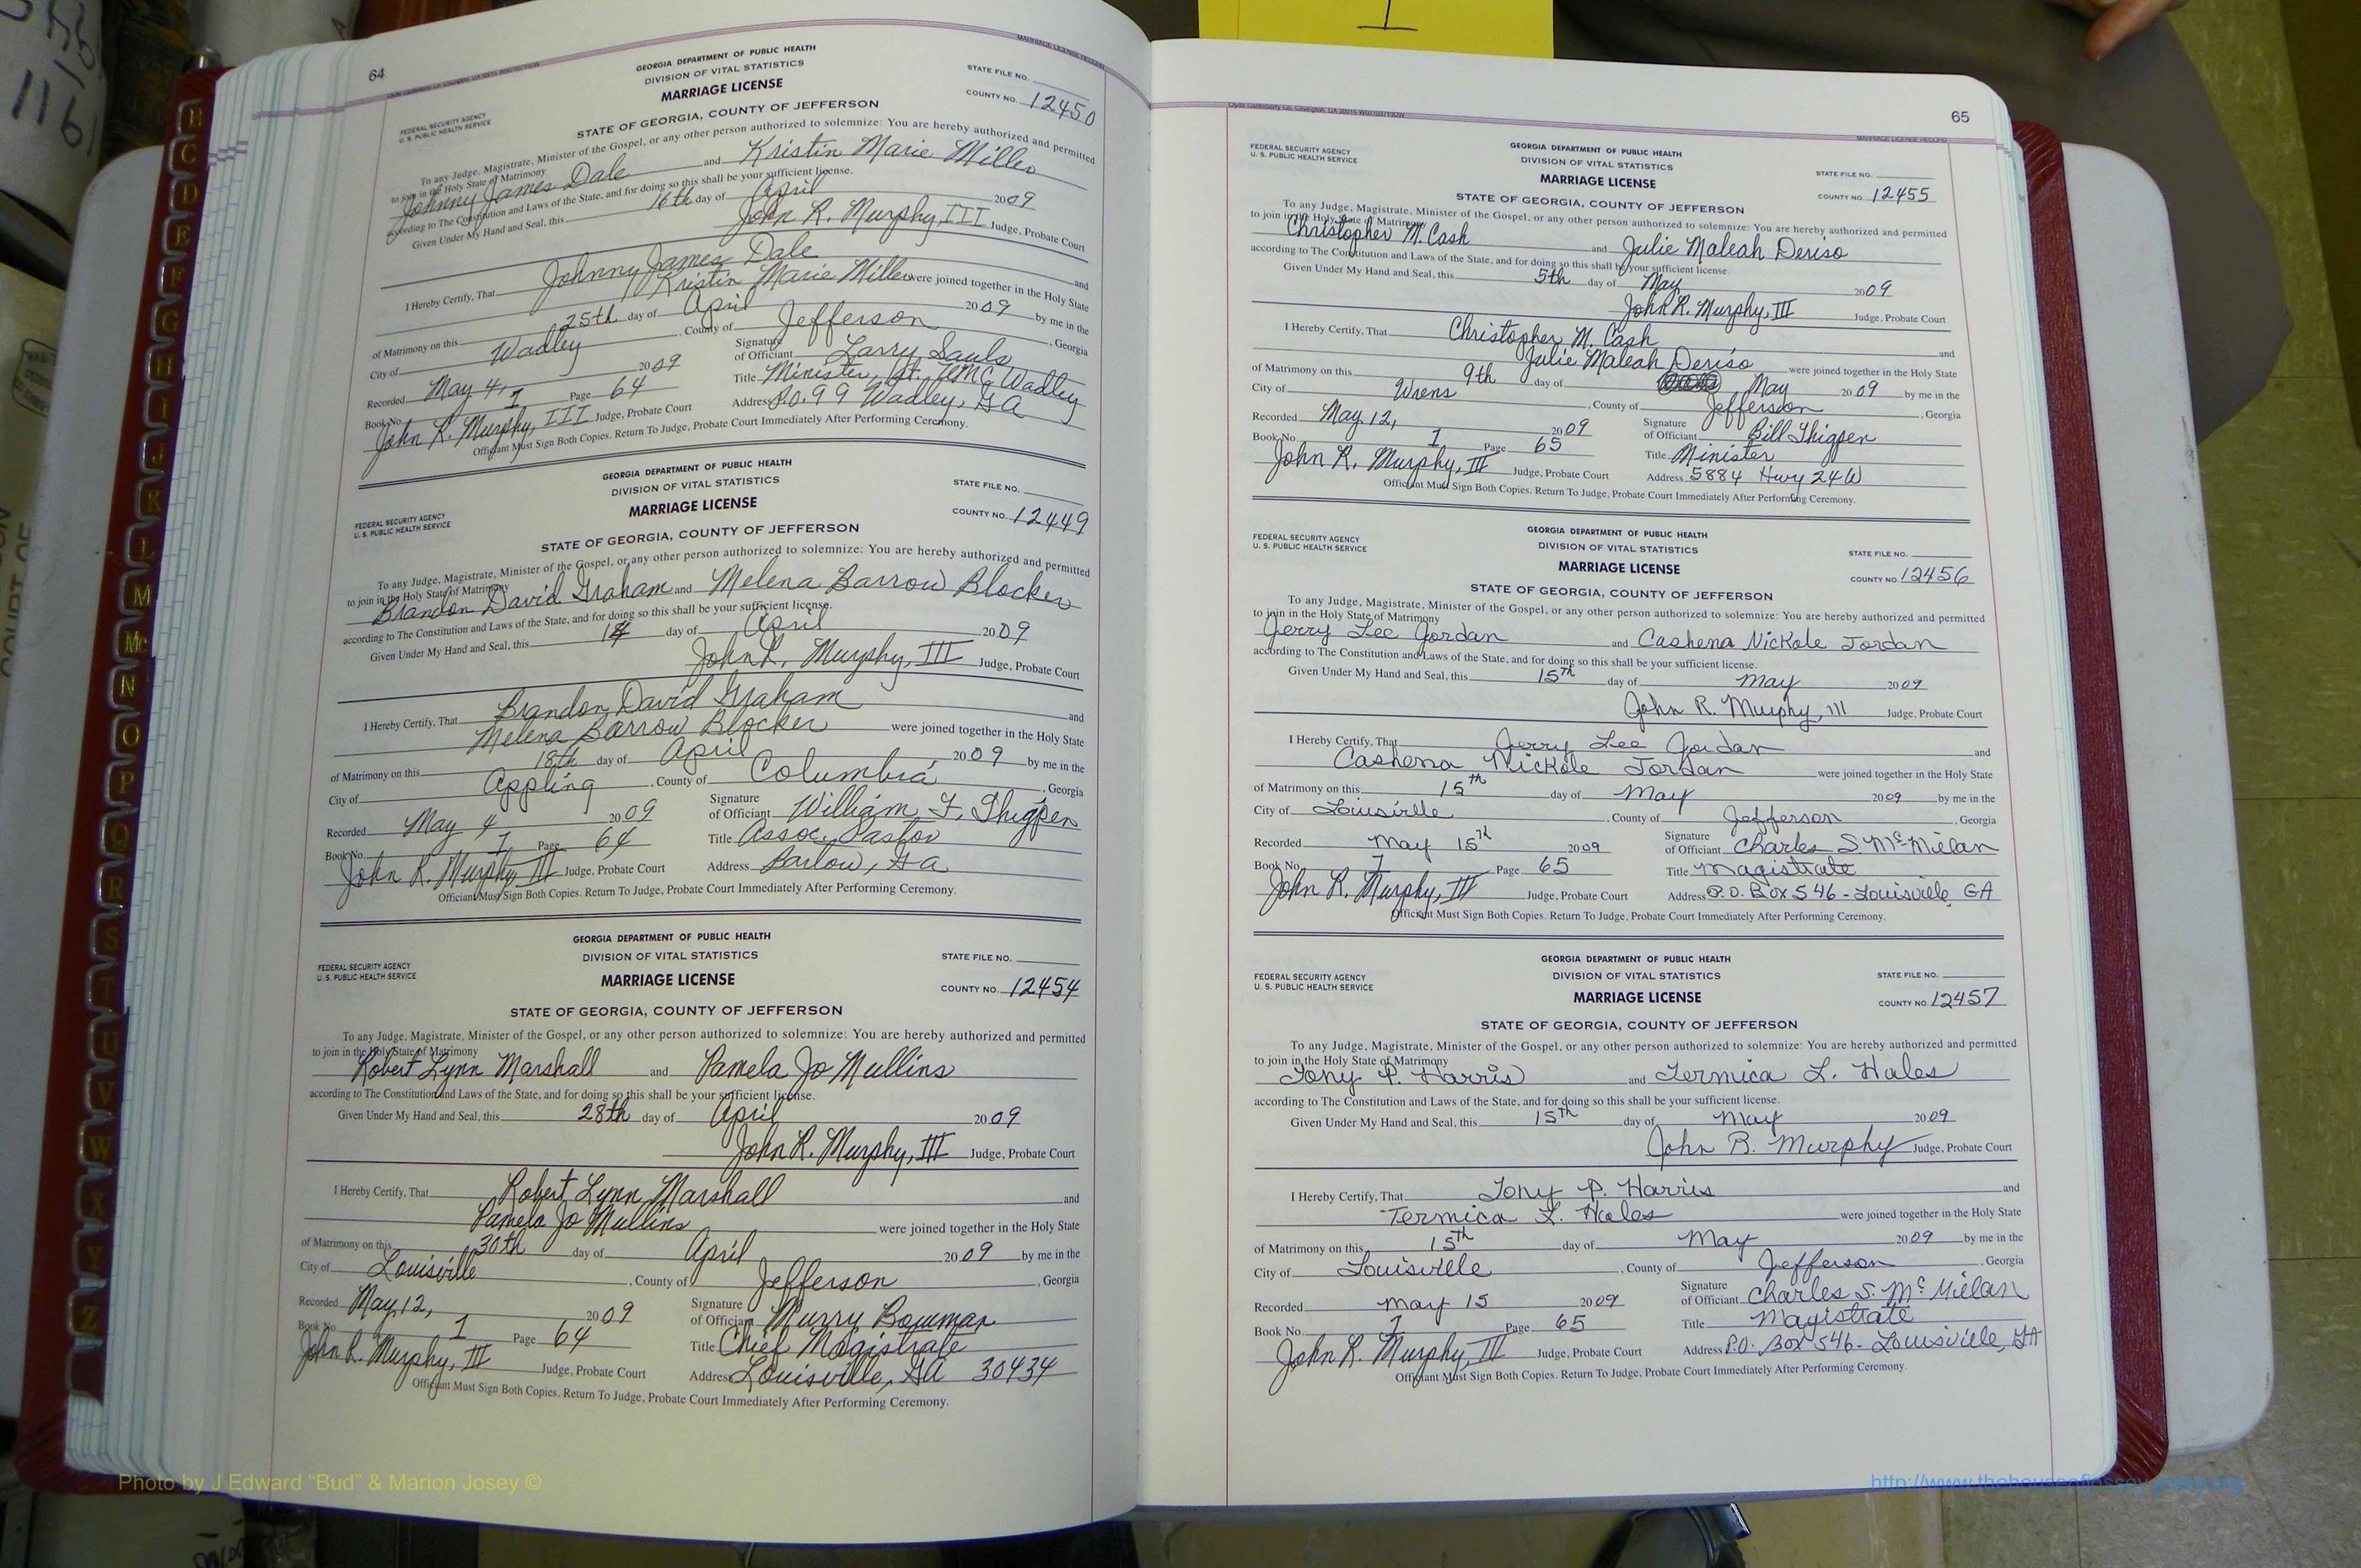 64
MARRIAGE LICENSE RECORD
GEORGIA DEPARTMENT OF PUBLIC HEALTH
DIVISION OF VITAL STATISTICS
MARRIAGE LICENSE
STATE OF GEORGIA, COUNTY OF JEFFERSON
FEDERAL SECURITY AGENCY
U. S. PUBLIC HEALTH SERVICE
STATE FILE NO.
COUNTY NO. 12450
To any Judge, Magistrate, Minister of the Gospel, or any other person authorized to solemnize: You are hereby authorized and permitted
to join in the Holy State of Matrimony
Johnny James Dale and Kristin Marie Miller
according to The Constitution and Laws of the State, and for doing so this shall be your sufficient license.
Given Under My Hand and Seal, this 16th day of April 2009
John R. Murphy III Judge, Probate Court
I Hereby Certify, That Johnny James Dale and
Kristin Marie Miller were joined together in the Holy State
of Matrimony on this 25th day of April 2009 by me in the
City of Wadley, County of Jefferson, Georgia
Recorded May 4, 2009
Signature of Officiant Larry Sauls
Book No. 1 Page 64
Title Minister, UMC Wadley
John R. Murphy, III Judge, Probate Court
Address P.O. 99 Wadley, GA
Officiant Must Sign Both Copies. Return To Judge, Probate Court Immediately After Performing Ceremony.
GEORGIA DEPARTMENT OF PUBLIC HEALTH
DIVISION OF VITAL STATISTICS
MARRIAGE LICENSE
STATE OF GEORGIA, COUNTY OF JEFFERSON
FEDERAL SECURITY AGENCY
U. S. PUBLIC HEALTH SERVICE
STATE FILE NO.
COUNTY NO. 12449
To any Judge, Magistrate, Minister of the Gospel, or any other person authorized to solemnize: You are hereby authorized and permitted
to join in the Holy State of Matrimony
Brandon David Graham and Melena Barrow Blocker
according to The Constitution and Laws of the State, and for doing so this shall be your sufficient license.
Given Under My Hand and Seal, this 14 day of April 2009
John R. Murphy, III Judge, Probate Court
I Hereby Certify, That Brandon David Graham and
Melena Barrow Blocker were joined together in the Holy State
of Matrimony on this 18th day of April 2009 by me in the
City of Appling, County of Columbia, Georgia
Recorded May 4 2009
Signature of Officiant William F. Thigpen
Book No. 1 Page 64
Title Assoc. Pastor
John R. Murphy III Judge, Probate Court
Address Barlow, Ga
Officiant Must Sign Both Copies. Return To Judge, Probate Court Immediately After Performing Ceremony.
GEORGIA DEPARTMENT OF PUBLIC HEALTH
DIVISION OF VITAL STATISTICS
MARRIAGE LICENSE
STATE OF GEORGIA, COUNTY OF JEFFERSON
FEDERAL SECURITY AGENCY
U. S. PUBLIC HEALTH SERVICE
STATE FILE NO.
COUNTY NO. 12454
To any Judge, Magistrate, Minister of the Gospel, or any other person authorized to solemnize: You are hereby authorized and permitted
to join in the Holy State of Matrimony
Robert Lynn Marshall and Pamela Jo Mullins
according to The Constitution and Laws of the State, and for doing so this shall be your sufficient license.
Given Under My Hand and Seal, this 28th day of April 2009
John R. Murphy, III Judge, Probate Court
I Hereby Certify, That Robert Lynn Marshall and
Pamela Jo Mullins were joined together in the Holy State
of Matrimony on this 30th day of April 2009 by me in the
City of Louisville, County of Jefferson, Georgia
Recorded May 12, 2009
Signature of Officiant Murry Bowman
Book No. 1 Page 64
Title Chief Magistrate
John R. Murphy, III Judge, Probate Court
Address Louisville, GA 30434
Officiant Must Sign Both Copies. Return To Judge, Probate Court Immediately After Performing Ceremony.
65
MARRIAGE LICENSE RECORD
GEORGIA DEPARTMENT OF PUBLIC HEALTH
DIVISION OF VITAL STATISTICS
MARRIAGE LICENSE
STATE OF GEORGIA, COUNTY OF JEFFERSON
FEDERAL SECURITY AGENCY
U. S. PUBLIC HEALTH SERVICE
STATE FILE NO.
COUNTY NO. 12455
To any Judge, Magistrate, Minister of the Gospel, or any other person authorized to solemnize: You are hereby authorized and permitted
to join in the Holy State of Matrimony
Christopher M. Cash and Julie Maleah Deriso
according to The Constitution and Laws of the State, and for doing so this shall be your sufficient license.
Given Under My Hand and Seal, this 5th day of May 2009
John R. Murphy, III Judge, Probate Court
I Hereby Certify, That Christopher M. Cash and
Julie Maleah Deriso were joined together in the Holy State
of Matrimony on this 9th day of May 2009 by me in the
City of Wrens, County of Jefferson, Georgia
Recorded May 12, 2009
Signature of Officiant Bill Thigpen
Book No. 1 Page 65
Title Minister
John R. Murphy, III Judge, Probate Court
Address 5884 Hwy 24 W
Officiant Must Sign Both Copies. Return To Judge, Probate Court Immediately After Performing Ceremony.
GEORGIA DEPARTMENT OF PUBLIC HEALTH
DIVISION OF VITAL STATISTICS
MARRIAGE LICENSE
STATE OF GEORGIA, COUNTY OF JEFFERSON
FEDERAL SECURITY AGENCY
U. S. PUBLIC HEALTH SERVICE
STATE FILE NO.
COUNTY NO. 12456
To any Judge, Magistrate, Minister of the Gospel, or any other person authorized to solemnize: You are hereby authorized and permitted
to join in the Holy State of Matrimony
Jerry Lee Jordan and Cashena Nickole Jordan
according to The Constitution and Laws of the State, and for doing so this shall be your sufficient license.
Given Under My Hand and Seal, this 15th day of May 2009
John R. Murphy, III Judge, Probate Court
I Hereby Certify, That Jerry Lee Jordan and
Cashena Nickole Jordan were joined together in the Holy State
of Matrimony on this 15th day of May 2009 by me in the
City of Louisville, County of Jefferson, Georgia
Recorded May 15th 2009
Signature of Officiant Charles S. McMillan
Book No. 1 Page 65
Title Magistrate
John R. Murphy, III Judge, Probate Court
Address P.O. Box 546 - Louisville, GA
Officiant Must Sign Both Copies. Return To Judge, Probate Court Immediately After Performing Ceremony.
GEORGIA DEPARTMENT OF PUBLIC HEALTH
DIVISION OF VITAL STATISTICS
MARRIAGE LICENSE
STATE OF GEORGIA, COUNTY OF JEFFERSON
FEDERAL SECURITY AGENCY
U. S. PUBLIC HEALTH SERVICE
STATE FILE NO.
COUNTY NO. 12457
To any Judge, Magistrate, Minister of the Gospel, or any other person authorized to solemnize: You are hereby authorized and permitted
to join in the Holy State of Matrimony
Tony P. Harris and Termica L. Hales
according to The Constitution and Laws of the State, and for doing so this shall be your sufficient license.
Given Under My Hand and Seal, this 15th day of May 2009
John B. Murphy Judge, Probate Court
I Hereby Certify, That Tony P. Harris and
Termica L. Hales were joined together in the Holy State
of Matrimony on this 15th day of May 2009 by me in the
City of Louisville, County of Jefferson, Georgia
Recorded May 15 2009
Signature of Officiant Charles S. McMillan
Book No. 1 Page 65
Title Magistrate
John R. Murphy, III Judge, Probate Court
Address P.O. Box 546 - Louisville, GA
Officiant Must Sign Both Copies. Return To Judge, Probate Court Immediately After Performing Ceremony.
B
C
D
E
F
G
H
I
J
K
L
M
Mc
N
O
P
Q
R
S
T
U
V
W
X
Y
Z
1
116
COURT OF
Photo by J Edward “Bud” & Marion Josey ©